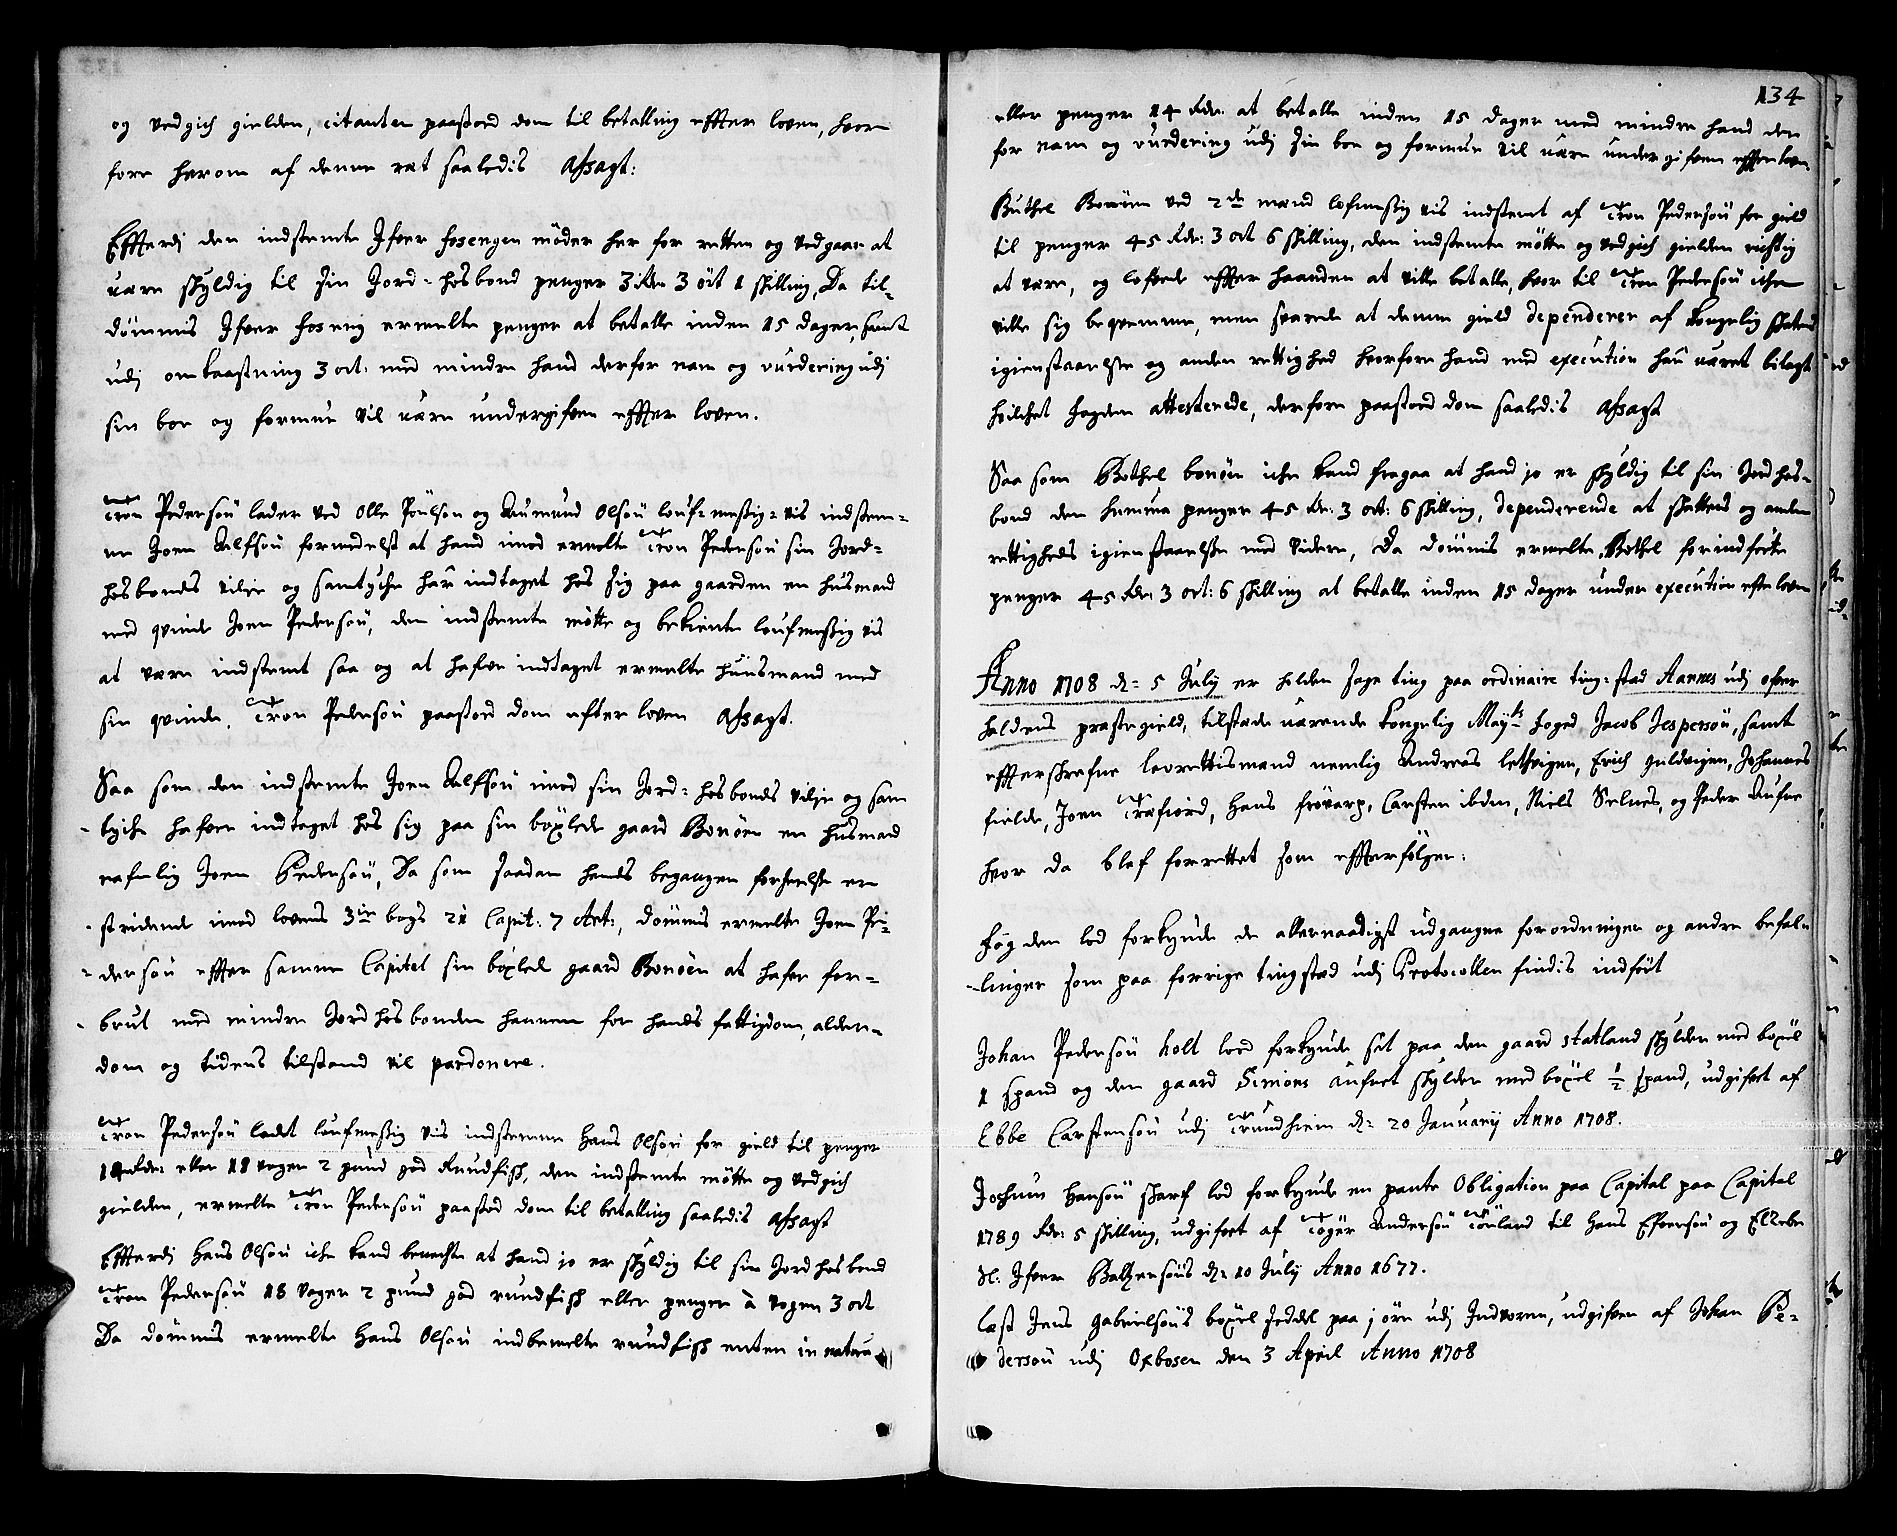 og vedgich gielden, citanten paastod dom til betalling effter loven, hvor
fore herom af denne ret saaledis Afsagt:
Effterdj den indstemte Ifver Fosengen möder her for retten og vedgaar at
være skyldig til sin Jord-hosbond penger 3 Rdr 3 ort 1 skilling, Da til-
dömmis Ifver Foseng ermelte penger at betalle inden 15 dager, samt
udj omkaastning 3 ort: med mindre hand derfor nam og vurdering udj
sin boe og formue vil være undergifven effter loven.
Tron Pedersön lader ved Olle Poulson og Aumund Olsön loufmessig-vis indstem-
me Joen Alfsön formedelst at hand imod ermelte Tron Pedersön sin Jord-
hosbonds vilje og samtyche har indtaget hos sig paa gaarden en husmand
med qvinde Joen Pedersön, den indstemte mötte og bekiente loufmessig vis
at være indstemt saa og at hafve indtaget ermelte huusmand med
sin qvinde. Tron Pedersön paastod dom efter loven Afsagt.
Saa som den indstemte Joen Alfsön imod sin Jord-hosbonds vilje og sam
tyche hafver indtaget hos sig paa sin böxlede gaard Bonöen en husmand
nafnlig Joen Pedersön, Da som saadan hands begangen forseelse er
stridende imod lovens 3die bogs 21 Capit: 7 Art:, dömmis ermelte Joen Pe-
dersön effter samme Capitel sin böxlede gaard Bonöen at hafve for-
brut med mindre Jordhosbonden hannem for hands fattigdom, alder-
dom og tidens tilstand vil pardonere.
Tron Pedersön ladet loufmessig vis indstemme Hans Olsön for gield til penger
14 Rdr: eller 18 voger 2 pund god Rundfisk, den indstemte mötte og vedgich
gielden, ermelte Tron Pedersön paastod dom til betalling saaledis Afsagt
Effterdj Hans Olsön iche kand benechte at hand jo er skyldig til sin Jordhosbond
Tron Pedersön 18 voger 2 pund god rundfisk eller penger à vogen 3 ort
Da dömmis ermelte Hans Olsön indbemelte rundfisk enten in natura
134
eller penger 14 Rdr: at betalle inden 15 dager med mindre hand der
for nam og vurdering udj sin boe og formue vil være undergifven effter loven.
Buthel Bonöen ved 2de mænd lofmessig vis indstemt af Tron Pedersön for gield
til penger 45 Rdr: 3 ort 6 skilling, den indstemte mötte og vedgich gielden rigtig
at være, og lofvede effter haanden at ville betalle, hvor til Tron Pedersön iche
ville sig beqvemme, men svarede at denne gield dependerer af kongelig skatters
igienstaaelse og anden rettighed hvorfore hand med execution har været belagt
hvilchet fogden attesterede, derfore paastod dom saaledis Afsagt
Saa som Bothel bonöen iche kand fragaa at hand jo er skyldig til sin Jordhos-
bond den summa penger 45 Rdr: 3 ort: 6 skilling, dependerende at skatters og anden
rettigheds igienstaaelse med videre, Da dömmis ermelte Bothel forindförte
penger 45 Rdr 3 ort: 6 skilling at betalle inden 15 dager under execution efter loven
Anno 1708 d: 5 July er holden sage ting paa ordinaire ting-stad Aarnes udj ofver
haldens præstegield, tilstede værende kongelig Mayts foged Jacob Jespersön, samt
effterskrefne leorettismænd nemlig Andreas lethvigen, Erich guldvigen, Johannes
fielde, Joen Træfiord, Hans frövarp, Carsten ibden, Niels Selnes, og Peder Aufne
hvor da blef forrettet som effterfölger:
Fogden lod forkynde de allernaadigst udgangne forordninger og andre befal-
linger som paa forrige tingstad udj Protocollen findis indfört
Johan Pedersön holt lod forkynde sit paa den gaard statland skylder med böxel
1 spand og den gaard Simons Aufnet skylder med böxel 1/2 spand, udgifvet af
Ebbe Carstensön udj Trundhiem d: 20 January Anno 1708.
Jochum Hansön skarf lod forkynde en pante Obligation paa Capital paa Capital
1789 Rdr: 5 skilling, udgifvet af Toger Andersön Tönland til Hans Efversön og Elsebe
Sl: Ifver Baltzersöns d: 10 July Anno 1677.
læst Jens gabrielsöns böxel seddel paa jörn udj Indvoren, udgifven af Johan Pe-
dersön udj Oxvosen den 3 April Anno 1708